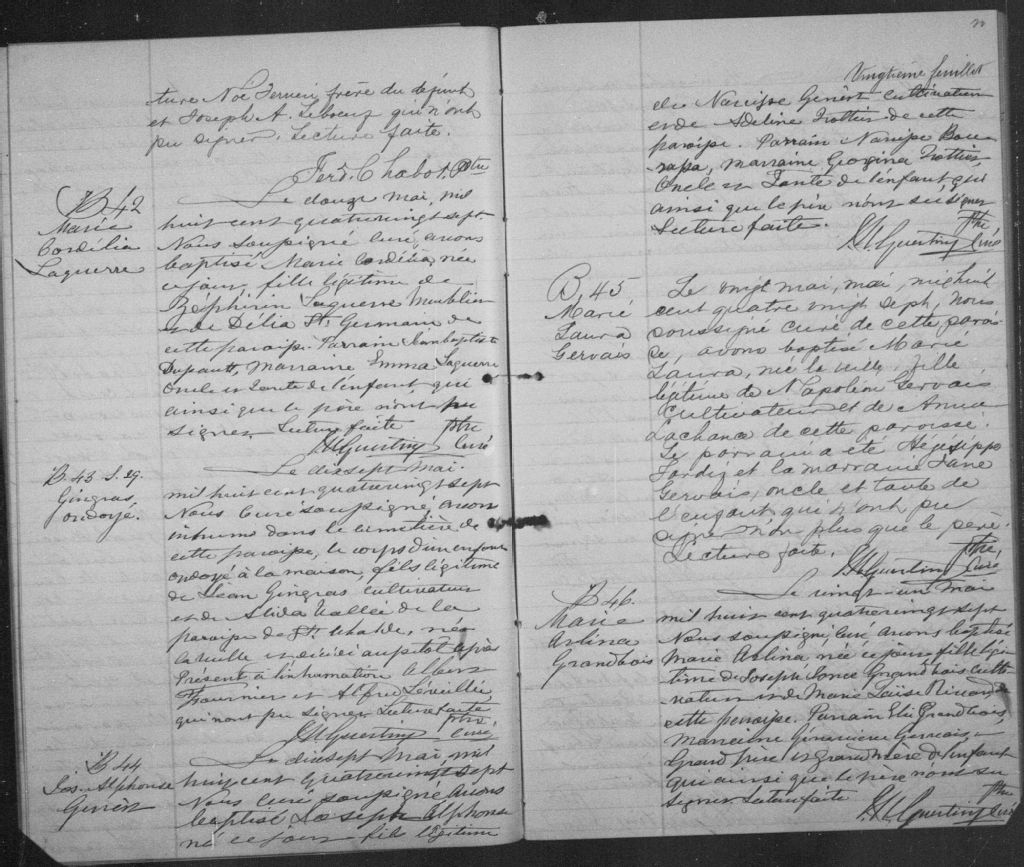 ture Noé Ferron, frère du défunt
et Joseph A. Leboeuf qui n'ont
pu signer. Lecture faite.
Ferd. Chabot, Ptre
B 42
Marie
Cordélia
Laguerre
Le douze mai, mil
huit cent quatrevingt sept
Nous soussigné curé, avons
baptisé Marie Cordélia, née
ce jour, fille légitime de
Zéphirin Laguerre
et de Délia St. Germain de
cette paroisse. Parrain Jean baptiste
Dupault, Marraine Emma Laguerre
Oncle et Tante de l'enfant, qui
ainsi que le père n'ont pu
signer. Lecture faite
Ptre
Curé
B. 43 S. 29.
Gingras
ondoyé.
Le dixsept Mai.
mil huit cent quatrevingt sept
Nous Curé soussigné, avons
inhumé dans le cimetière de
cette paroisse, le corps d'un enfant
ondoyé à la maison, fils légitime
de Jean Gingras cultivateur
et de Vallée de la
paroisse de St. né
la veille et décédé aussitôt après
Présent à l'inhumation Albert
Fournier et Alfred Léveillée
qui n'ont pu signer Lecture faite
Ptre.
Curé
B 44
Jos. Alphonse
Genest
Le dixsept Mai, mil
huit cent quatrevingt sept
Nous Curé soussigné avons
baptisé Joseph Alphonse
né ce jour fils légitime
Vingtième feuillet
de Narcisse Genest Cultivateur
et de Adeline Trottier de cette
paroisse. Parrain Narcisse
Marraine Georgina Trottier,
Oncle et Tante de l'enfant, qui
ainsi que le père n'ont su signer
Lecture faite.
Ptre
Curé
B. 45
Marie
Laura
Gervais
Le vingt mai, mai, mil huit
cent quatre vingt sept, nous
soussigné curé de cette parois-
se, avons baptisé Marie
Laura, née la veille, fille
légitime de Napoléon Gervais
Cultivateur et de Anna
Lachance de cette paroisse.
Le parrain a été Hégésippe
Tardif et la marraine Jane
Gervais, oncle et tante de
l'enfant qui n'ont pu
signer non plus que le père.
Lecture faite.
Ptre,
Curé
B 46.
Marie
Arlina
Grandbois
Le vingt-un mai
mil huit cent quatrevingt sept
Nous soussigné, curé avons baptisé
Marie Arlina née ce jour fille légi-
time de Joseph Grandbois culti-
vateur et de Marie Louise Rivard de
cette paroisse. Parrain Elie Grandbois,
Marraine Géneviève Gervais
Grand père et grand mère de l'enfant
qui ainsi que le père n'ont su
signer Lecture faite
Ptre
Curé